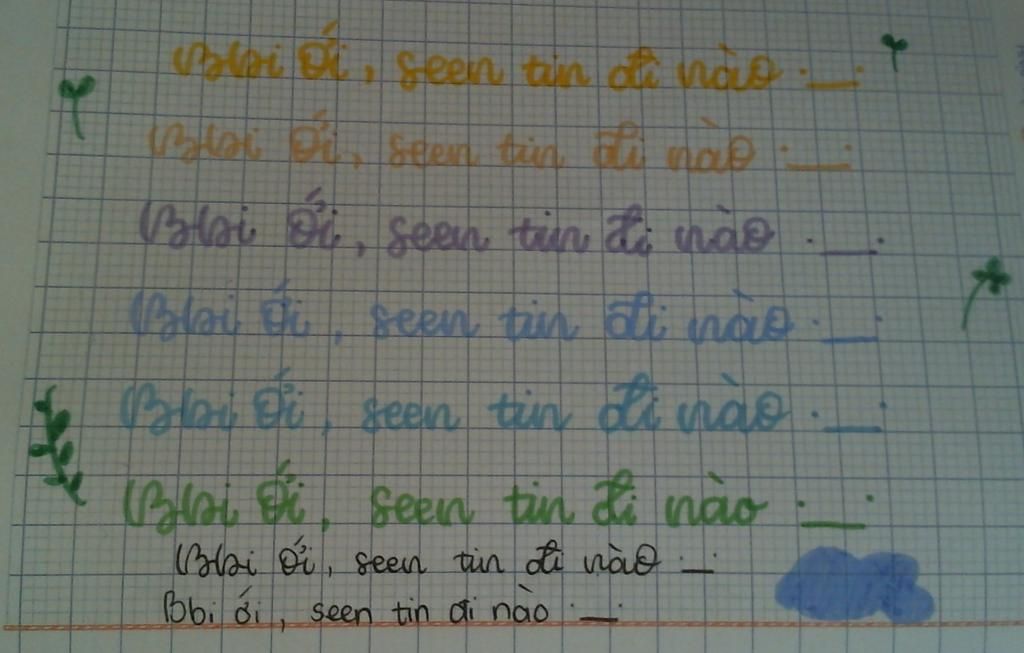 Bbi ới, seen tin đi nào ·__·
Bbi ới, seen tin đi nào ·__·
Bbi ới, seen tin đi nào ·__·
Bbi ới, seen tin đi nào ·__·
Bbi ới, seen tin đi nào ·__·
Bbi ới, seen tin đi nào ·__·
Bbi ới, seen tin đi nào ·__·
Bbi ới, seen tin đi nào ·__·